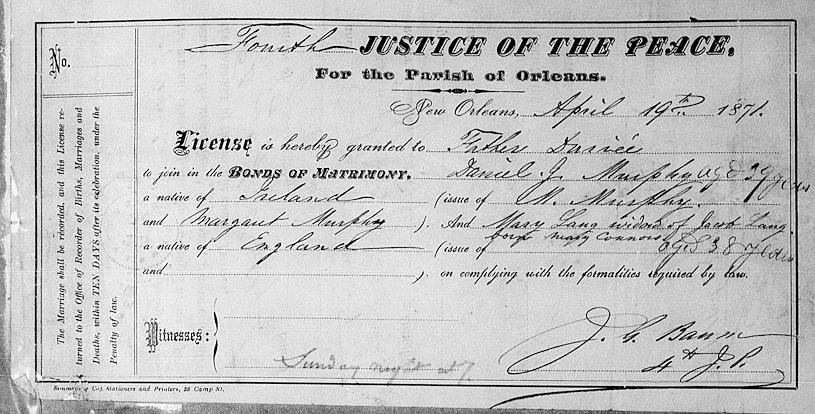 Fourth JUSTICE OF THE PEACE,
For the Parish of Orleans.
No.
New Orleans, April 19th 1871.
License is hereby granted to Father
to join in the BONDS OF MATRIMONY, Daniel J. Murphy aged 39 years
a native of Ireland (issue of M. Murphy.
and Margaret Murphy ). And Mary Lang widow of Jacob Lang
born Mary Connors
a native of England (issue of aged 38 years
and ). on complying with the formalities required by law.
Witnesses:
J. G.
4th J.P.
Sunday night at 7.
The Marriage shall be recorded, and this License re-
turned to the Office of Recorder of Births, Marriages and
Deaths, within TEN DAYS after its celebration, under the
Penalty of law.
& Co., Stationers and Printers, 56 Camp St.